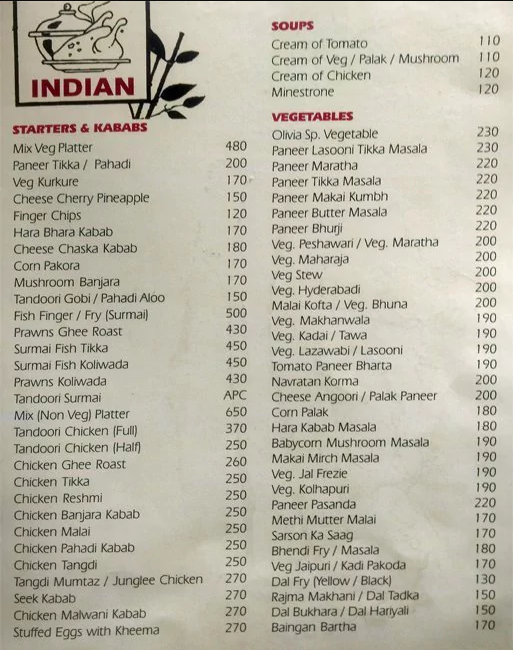 INDIAN
STARTERS & KABABS
Mix Veg Platter 480
Paneer Tikka / Pahadi 200
Veg Kurkure 170
Cheese Cherry Pineapple 150
Finger Chips 120
Hara Bhara Kabab 170
Cheese Chaska Kabab 180
Corn Pakora 170
Mushroom Banjara 170
Tandoori Gobi / Pahadi Aloo 150
Fish Finger / Fry (Surmai) 500
Prawns Ghee Roast 430
Surmai Fish Tikka 450
Surmai Fish Koliwada 450
Prawns Koliwada 430
Tandoori Surmai APC
Mix (Non Veg) Platter 650
Tandoori Chicken (Full) 370
Tandoori Chicken (Half) 250
Chicken Ghee Roast 260
Chicken Tikka 250
Chicken Reshmi 250
Chicken Banjara Kabab 250
Chicken Malai 250
Chicken Pahadi Kabab 250
Chicken Tangdi 250
Tangdi Mumtaz / Junglee Chicken 270
Seek Kabab 270
Chicken Malwani Kabab 270
Stuffed Eggs with Kheema 270
SOUPS
Cream of Tomato 110
Cream of Veg / Palak / Mushroom 110
Cream of Chicken 120
Minestrone 120
VEGETABLES
Olivia Sp. Vegetable 230
Paneer Lasooni Tikka Masala 230
Paneer Maratha 220
Paneer Tikka Masala 220
Paneer Makai Kumbh 220
Paneer Butter Masala 220
Paneer Bhurji 220
Veg. Peshawari / Veg. Maratha 200
Veg. Maharaja 200
Veg Stew 200
Veg. Hyderabadi 200
Malai Kofta / Veg. Bhuna 200
Veg. Makhanwala 190
Veg. Kadai / Tawa 190
Veg. Lazawabi / Lasooni 190
Tomato Paneer Bharta 190
Navratan Korma 200
Cheese Angoori / Palak Paneer 200
Corn Palak 180
Hara Kabab Masala 180
Babycorn Mushroom Masala 190
Makai Mirch Masala 190
Veg. Jal Frezie 190
Veg. Kolhapuri 190
Paneer Pasanda 220
Methi Mutter Malai 170
Sarson Ka Saag 170
Bhendi Fry / Masala 180
Veg Jaipuri / Kadi Pakoda 170
Dal Fry (Yellow / Black) 130
Rajma Makhani / Dal Tadka 150
Dal Bukhara / Dal Hariyali 150
Baingan Bartha 170